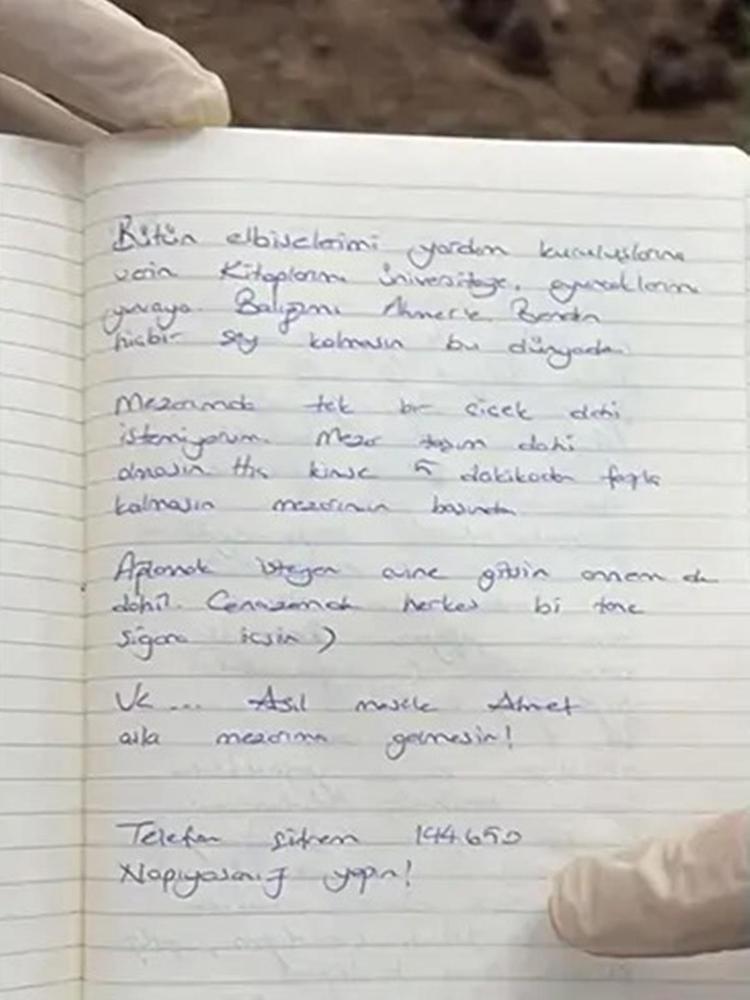 Bütün elbiselerimi yardım kuruluşlarına
verin Kitaplarımı üniversiteye, oyuncaklarımı
yuvaya. Balığımı Ahmet'e Benden
hiçbir şey kalmasın bu dünyada.
Mezarımda tek bir çiçek dahi
istemiyorum. Mezar taşım dahi
olmasın Hiç kimse 5 dakikadan fazla
kalmasın mezarımın başında
Ağlamak isteyen evine gitsin annem de
dahil. Cenazemde herkes bi tane
sigara içsin )
Ve ... Asıl mesele Ahmet
asla mezarıma gelmesin!
Telefon şifrem 144650
Napıyosanız yapın!